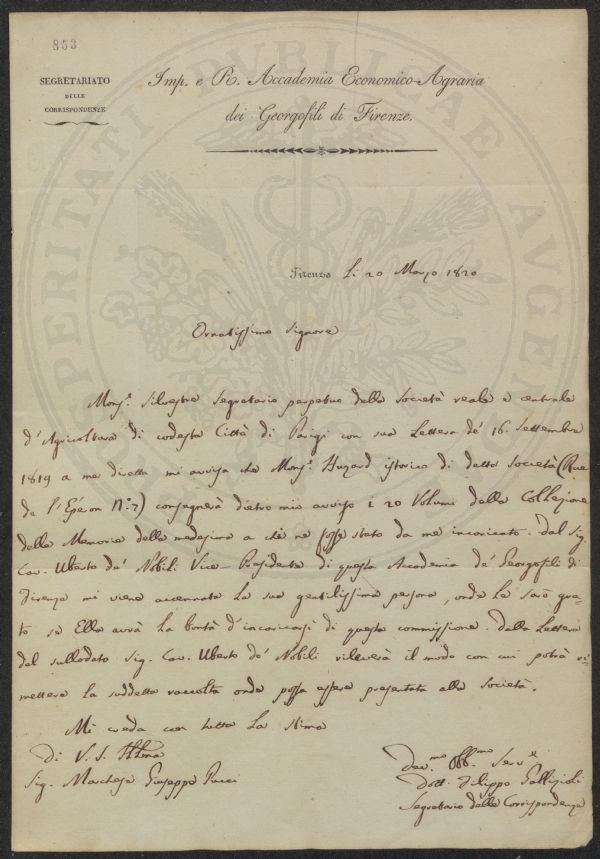 853
SEGRETARIATO
DELLE
CORRISPONDENZE
Imp. e R. Accademia Economico-Agraria
dei Georgofili di Firenze.
PROSPERITATI PUBLICAE AUGENDAE
Firenze Li 20 Marzo 1820
Ornatissimo Signore
Monsr. Silvestre Segretario perpetuo della Società reale e centrale
d'Agricoltura di codesta Città di Parigi con sua Lettera de' 16. Settembre
1819 a me diretta mi avvisa che Monsr. Huzard istorico di detta Società (Rue
de l'Eperon No. 7) consegnerà dietro mio avviso i 20 Volumi della Collezione
delle Memorie della medesima a chi ne fosse stato da me incaricato. Dal Sig.
Cav. Uberto de' Nobili Vice-Presidente di questa Accademia de' Georgofili di
Firenze mi viene accennata la sua gentilissima persona, onde Le sarò gra-
to se Ella avrà la bontà d'incaricarsi di questa commissione. Dalla Lettera
del sullodato Sig. Cav. Uberto de' Nobili rileverà il modo con cui potrà ri-
mettere la suddetta raccolta onde possa essere presentata alla Società.
Mi creda con tutta la stima
Di V. S. Illma
Sig. Marchese Giuseppe Pucci
Dev.mo Obb.mo Serv.e
Dott. Filippo Gallizioli
Segretario delle Corrispondenze